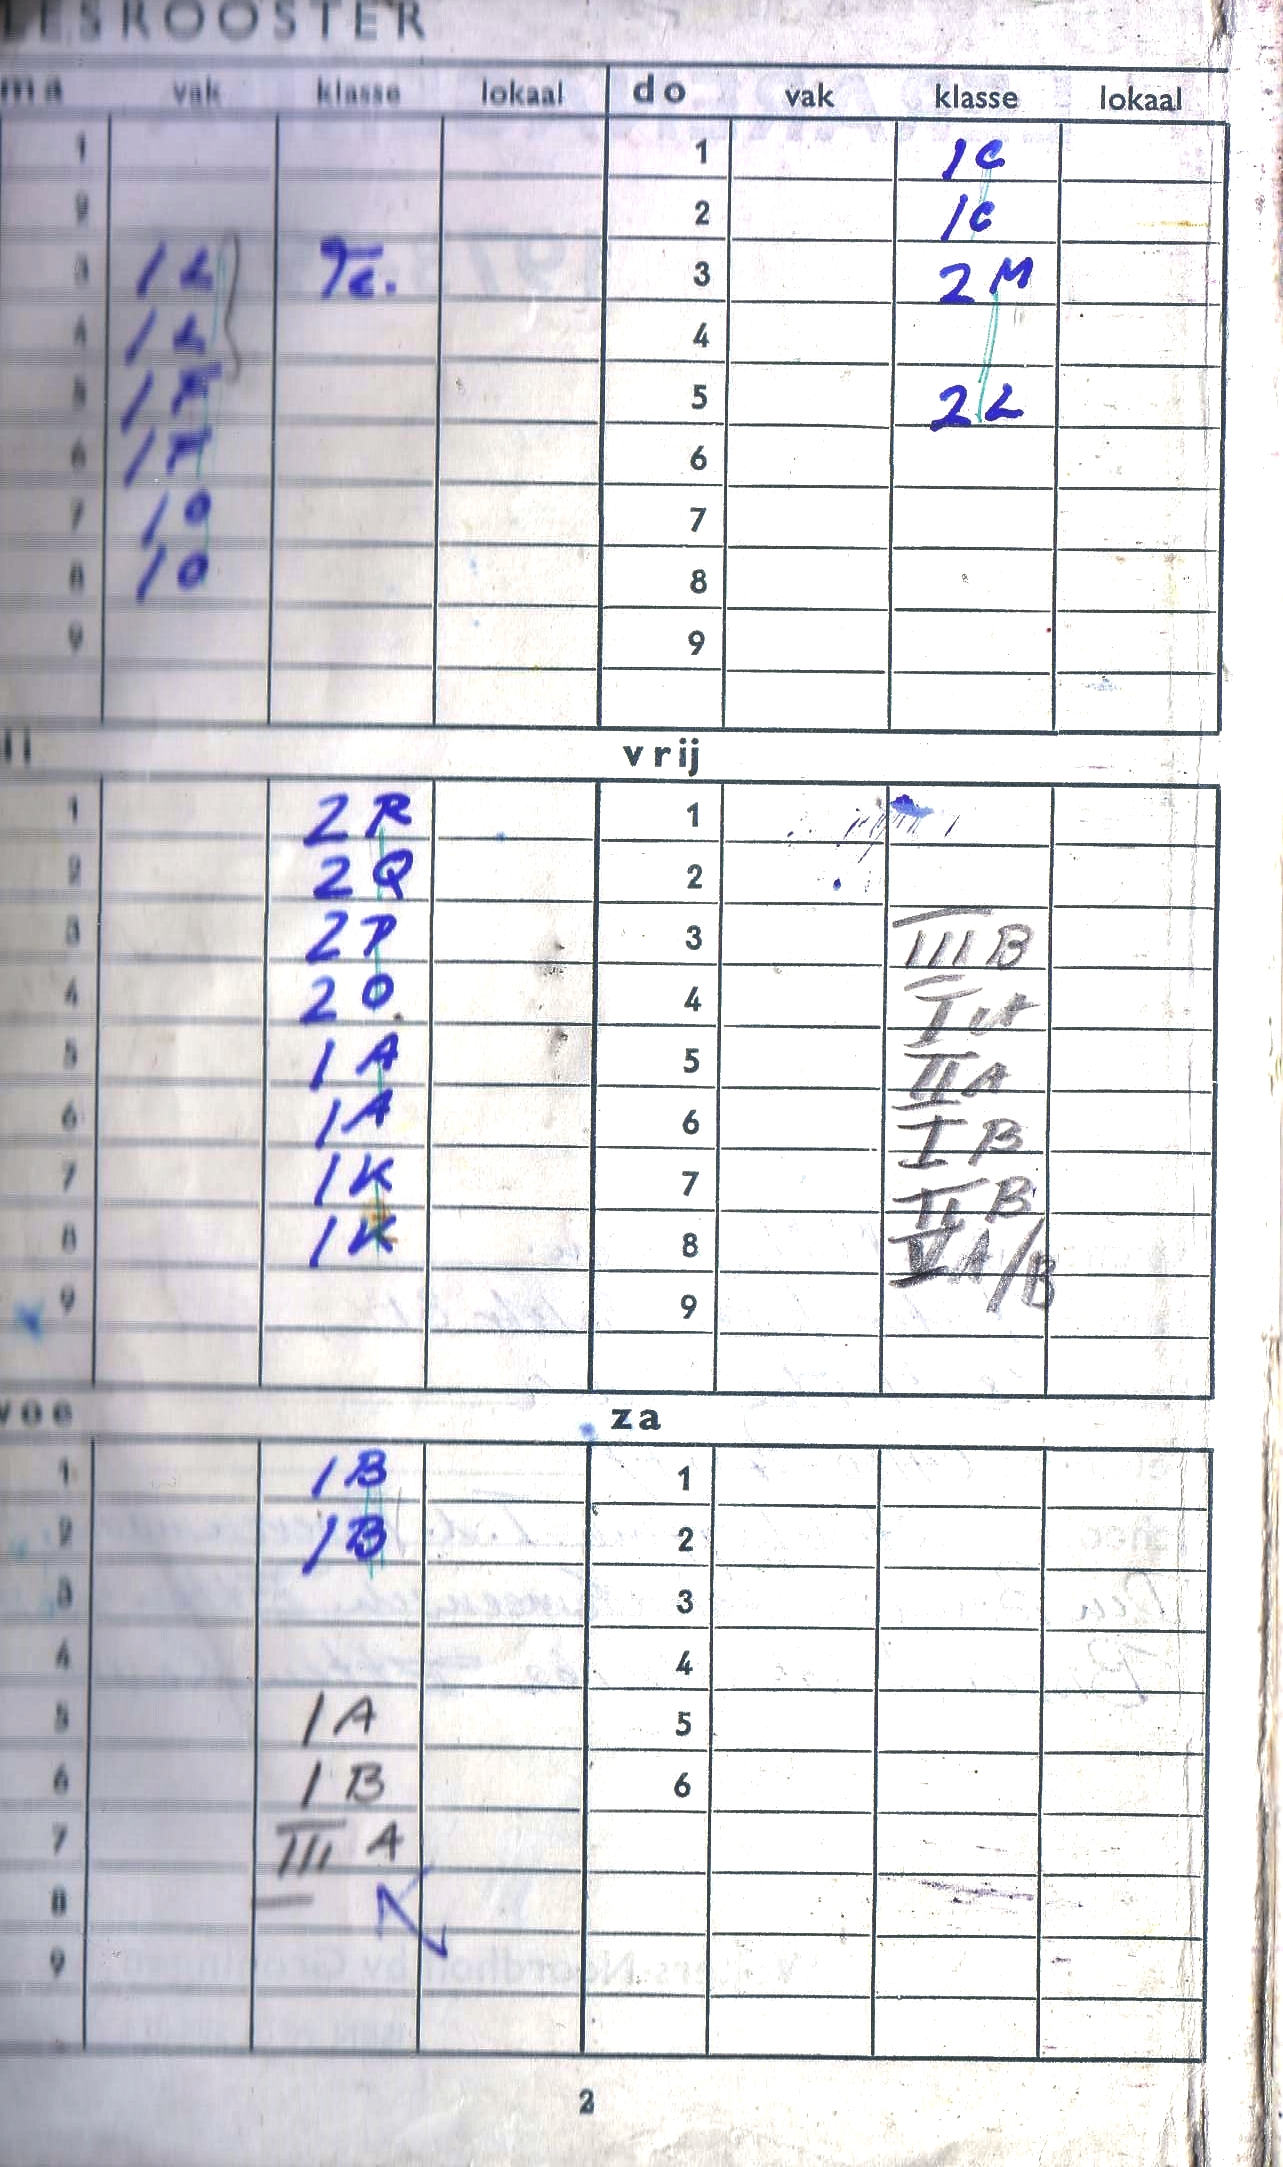 LESROOSTER
ma vak klasse lokaal
1
2
3 1L
4 1L
5 1F
6 1F
7 1O
8 1O
9
do vak klasse lokaal
1 1C
2 1C
3 2M
4
5 2L
6
7
8
9
di
1 2R
2 2Q
3 2P
4 2O.
5 1A
6 1A
7 1K
8 1K
9
vrij
1
2
3 III B
4 I A
5 II A
6 I B
7 II B
8 V A/B
9
woe
1 1B
2 1B
3
4
5 1A
6 1B
7 III A
8 —
9
za
1
2
3
4
5
6
2